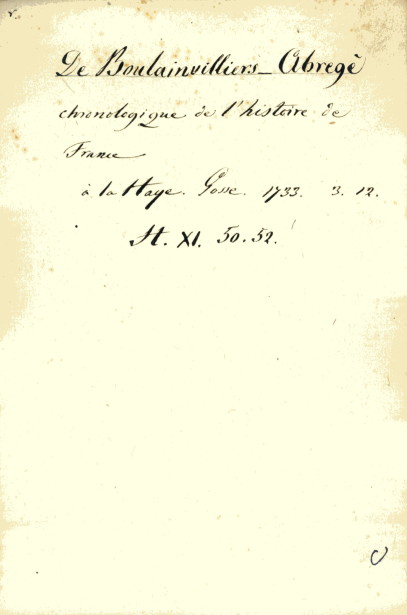 De Boulainvilliers_Abregè
chronologique de l'histoire de
France
à la Haye. Gosse. 1733. 3. 12.
H. XI. 50.52.